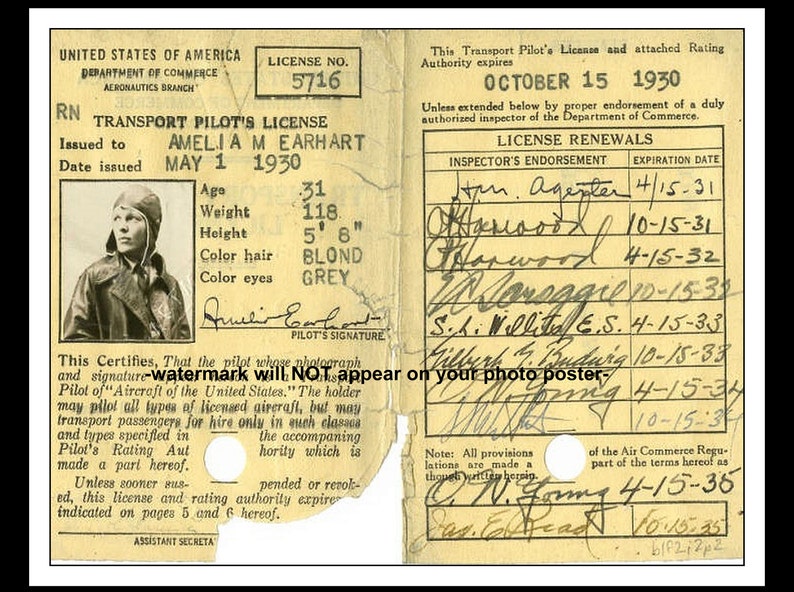 UNITED STATES OF AMERICA
DEPARTMENT OF COMMERCE
AERONAUTICS BRANCH
LICENSE NO.
5716
RN
TRANSPORT PILOT'S LICENSE
Issued to AMELIA M EARHART
Date issued MAY 1 1930
Age 31
Weight 118
Height 5' 8"
Color hair BLOND
Color eyes GREY
Amelia Earhart
PILOT'S SIGNATURE
This Certifies, That the pilot whose photograph
and signature
Pilot of "Aircraft of the United States." The holder
may pilot all types of licensed aircraft, but may
transport passengers for hire only in such classes
and types specified in the accompaning
Pilot's Rating Aut hority which is
made a part hereof.
Unless sooner sus- pended or revok-
ed, this license and rating authority expires
indicated on pages 5 and 6 hereof.
ASSISTANT SECRETA
-watermark will NOT appear on your photo poster-
This Transport Pilot's License and attached Rating
Authority expires
OCTOBER 15 1930
Unless extended below by proper endorsement of a duly
authorized inspector of the Department of Commerce.
LICENSE RENEWALS
INSPECTOR'S ENDORSEMENT EXPIRATION DATE
4/15-31
Harwood 10-15-31
Harwood 4-15-32
10-15-32
S. L. Willits E.S. 4-15-33
Gilbert G. Budwig 10-15-33
Young 4-15-34
10-15-34
Note: All provisions of the Air Commerce Regu-
lations are made a part of the terms hereof as
though written herein.
O. N. Young 4-15-35
Jas. E. Read 10-15-35
b1f2i2p2